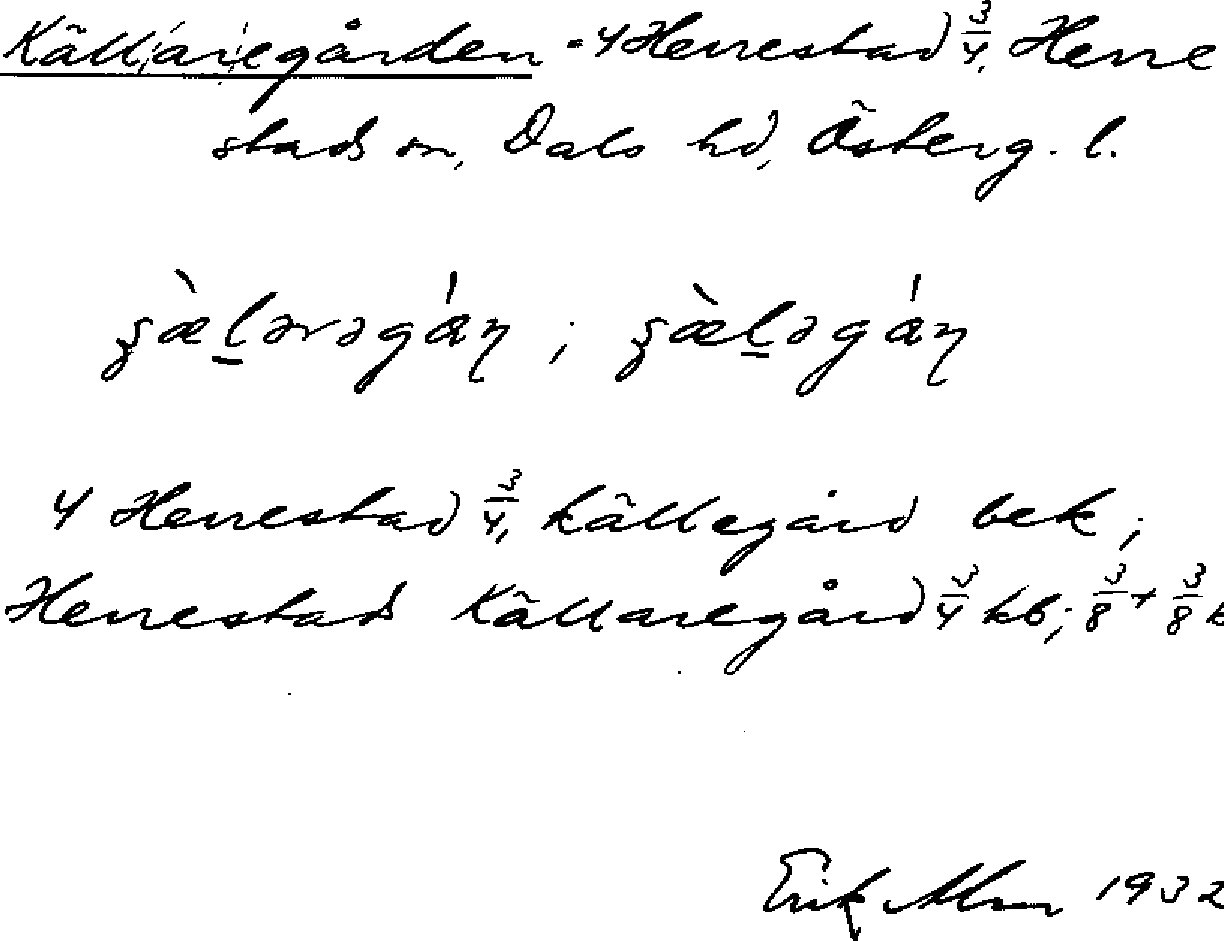 Källaregården = 4 Herrestad 3/4, Herre
stads sn, Dals hd, Österg. l.
ʂæ̀ḻərəgáɳ ; ʂæ̀ḻəgáɳ
4 Herrestad 3/4, källegård bek;
Herrestads Källaregård 3/4 kb; 3/8 + 3/8 k
Erik Abran 1932